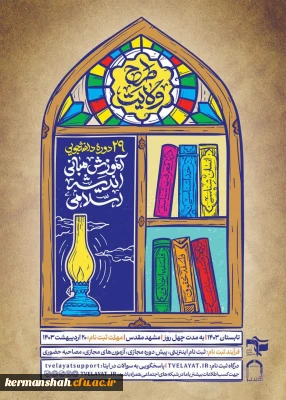 طرح
ولایت
۲۹ دوره دانشجویی
آموزش مبانی
اندیشه
اسلامی
تابستان ۱۴۰۳ | به مدت چهل روز | مشهد مقدس | مهلت ثبت نام: ۲۰ اردیبهشت ۱۴۰۳
فرآیند ثبت نام: ثبت نام اینترنتی، پیش دوره مجازی، آزمون‌های مجازی، مصاحبه حضوری
درگاه ثبت نام: TVELAYAT.IR | پاسخگویی به سوالات در ایتا: tvelayatsupport
جهت کسب اطلاعات بیشتر با ما در شبکه های اجتماعی همراه باشید
TVELAYAT_IR
kermanshah.cfu.ac.ir